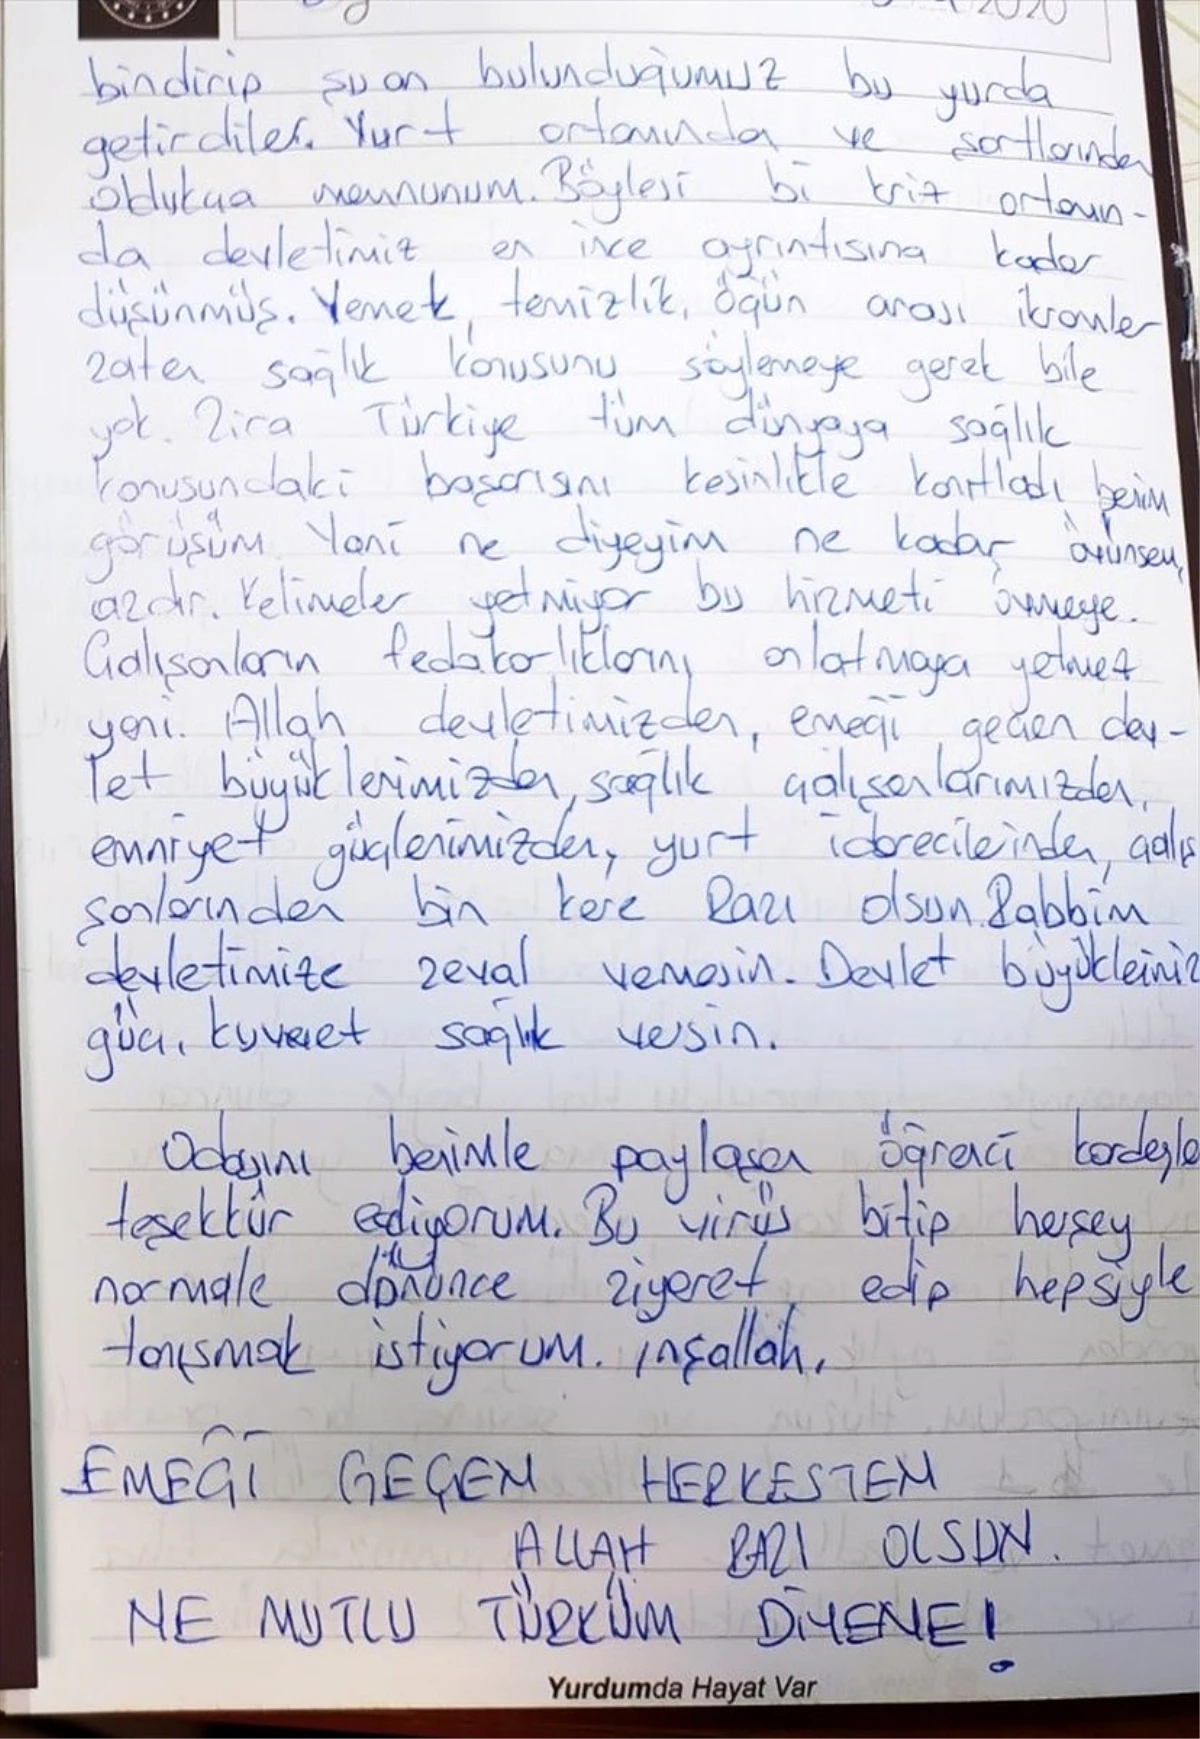 2020
bindirip şu an bulunduğumuz bu yurda
getirdiler. Yurt ortamından ve şartlarından
oldukça memnunum. Böylesi bi kriz ortamın-
da devletimiz en ince ayrıntısına kadar
düşünmüş. Yemek, temizlik, öğün arası ikramlar
zaten sağlık konusunu söylemeye gerek bile
yok. Zira Türkiye tüm dünyaya sağlık
konusundaki başarısını kesinlikle kanıtladı benim
görüşüm. Yani ne diyeyim ne kadar övünsem
azdır. Kelimeler yetmiyor bu hizmeti övmeye.
Çalışanların fedakarlıklarını anlatmaya yetmez
yani. Allah devletimizden, emeği geçen dev-
let büyüklerimizden, sağlık çalışanlarımızdan,
emniyet güçlerimizden, yurt idarecileinden, çalış
şanlarından bin kere Razı olsun. Rabbim
devletimize zeval vemesin. Devlet büyükleimiz
güç, kuvvet sağlık versin.
Odasını benimle paylaşan öğrenci kardeşle
teşekkür ediyorum. Bu virüs bitip herşey
normale dönünce ziyaret edip hepsiyle
tanışmak istiyorum. inşallah.
EMEĞİ GEÇEN HERKESTEN
ALLAH RAZI OLSUN.
NE MUTLU TÜRKÜM DİYENE!
Yurdumda Hayat Var